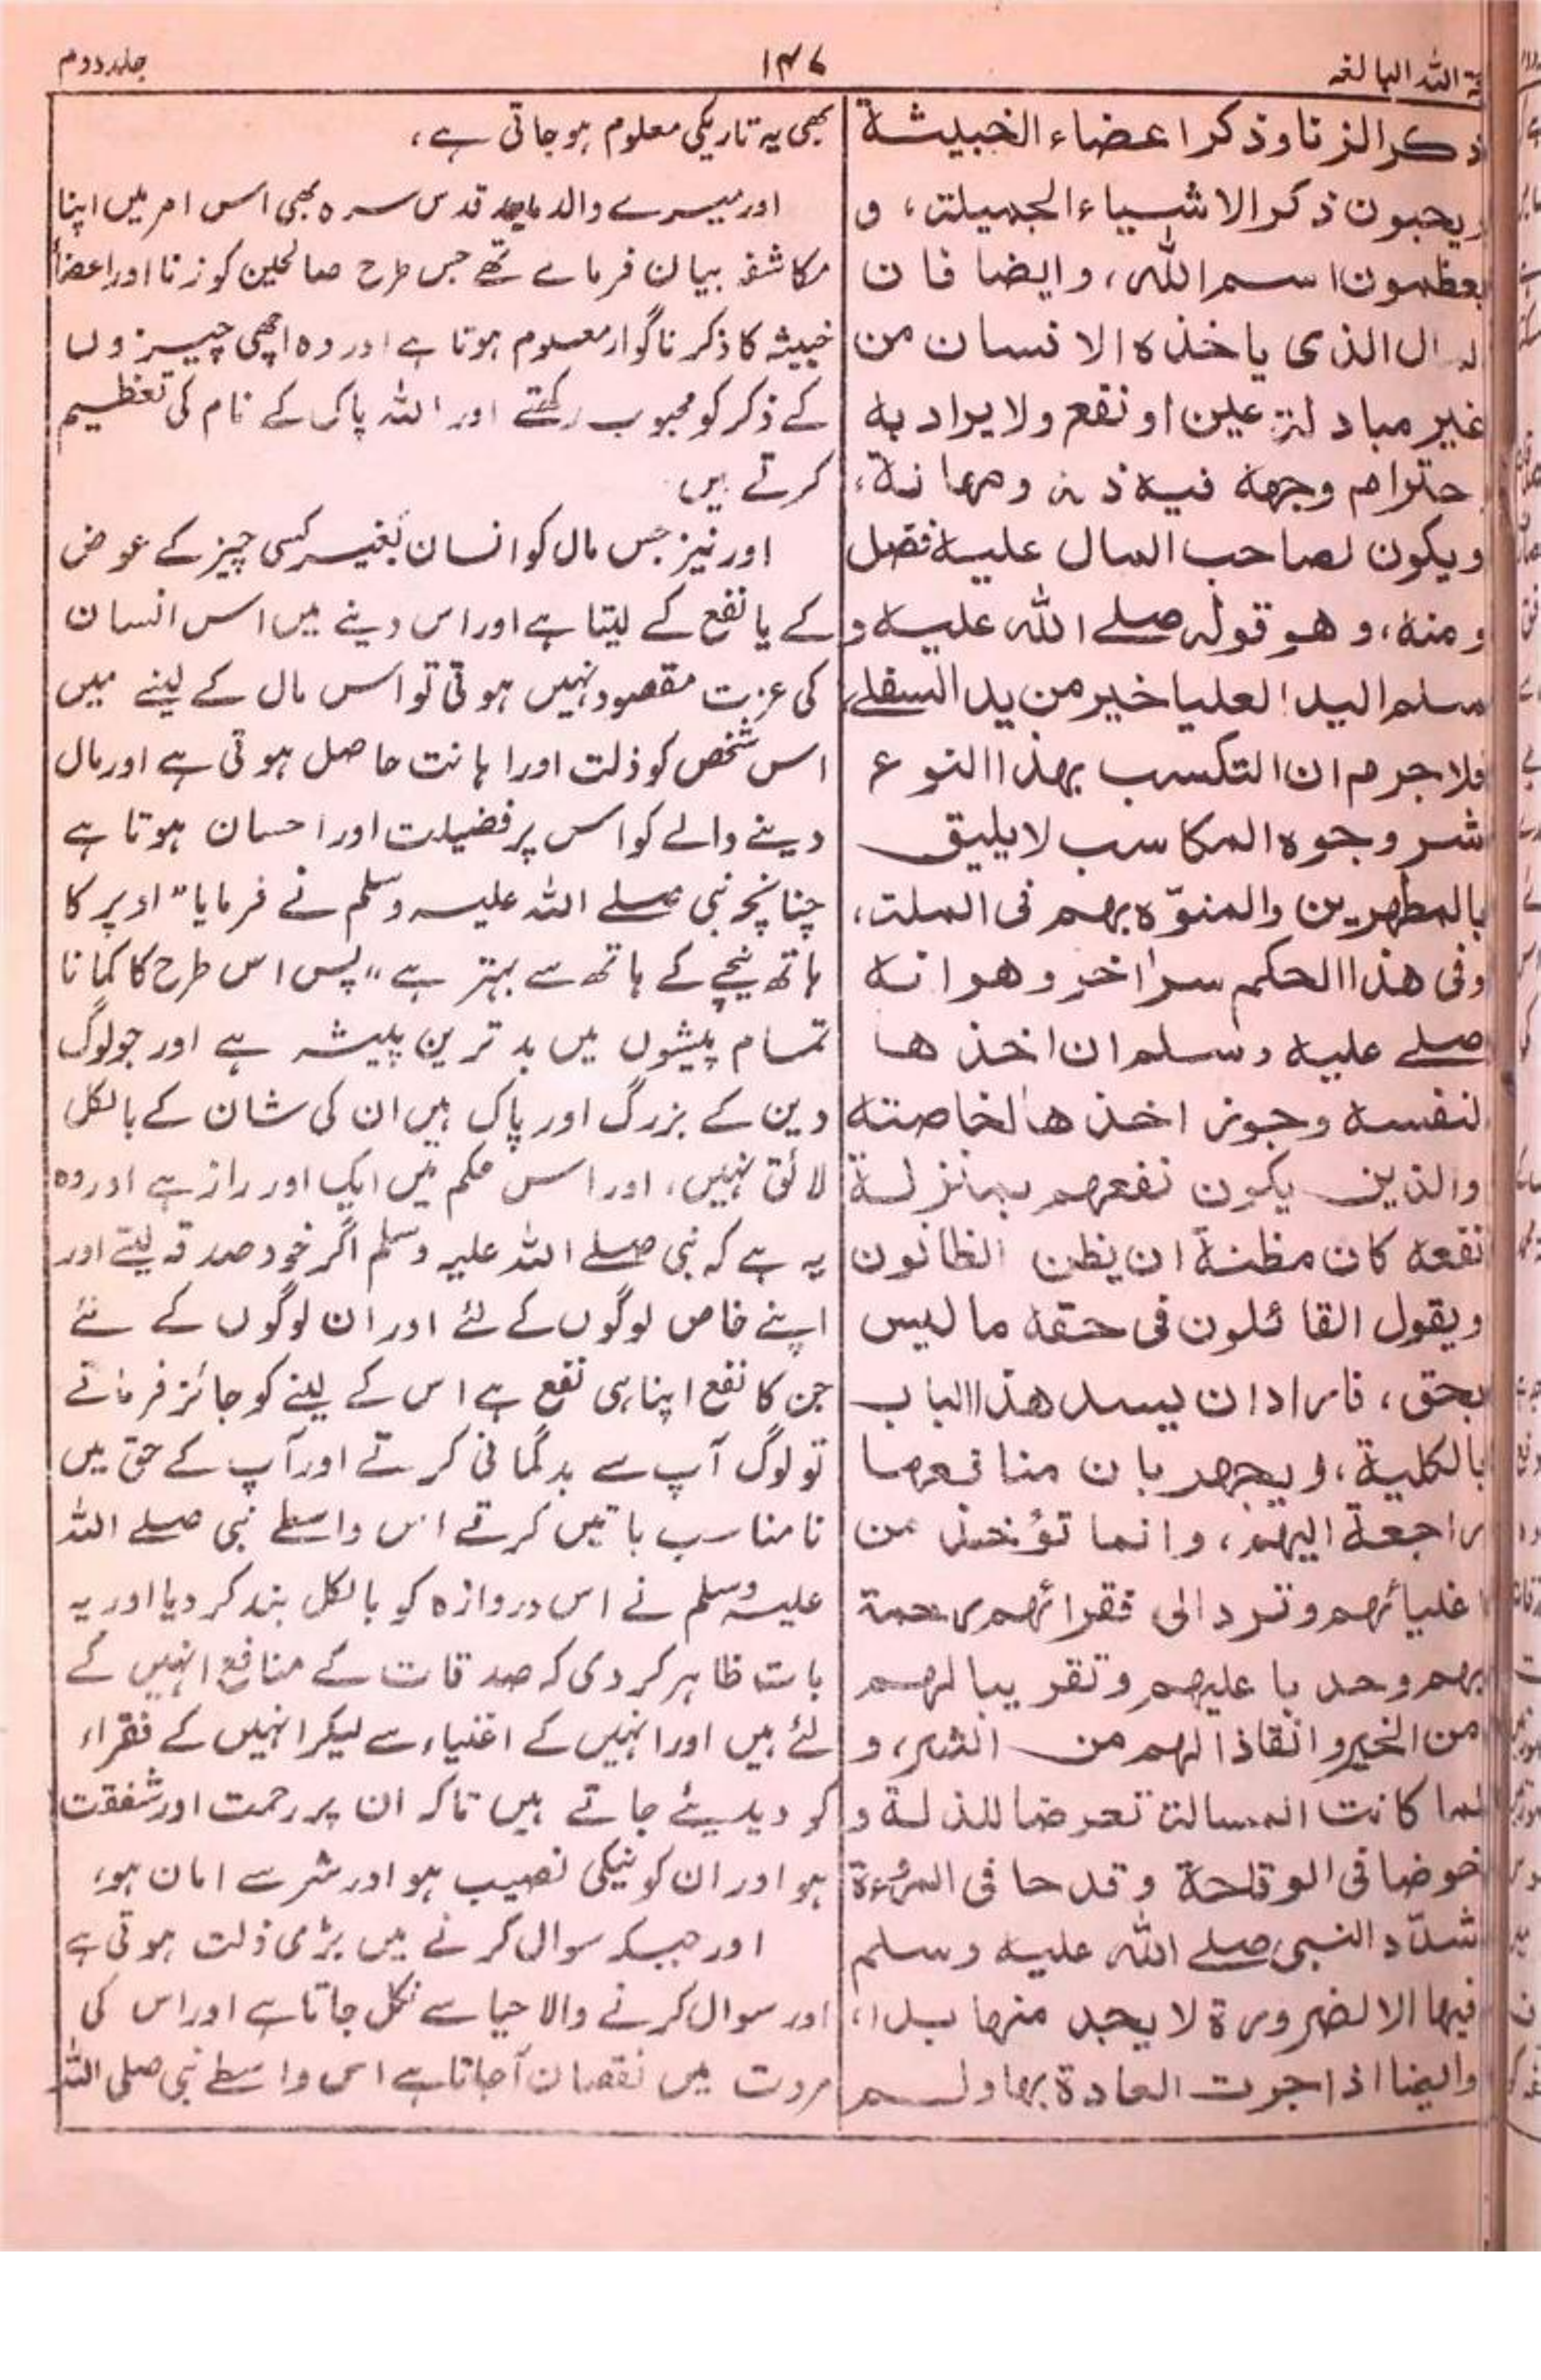 ة اللہ البالغہ
۱۴۶
جلد دوم
ذكر الزنا وذكر اعضاء الخبيثة
ويحبون ذكر الاشياء الجميلة، و
يعظمون اسم الله، وايضا فان
المال الذى ياخذه الانسان من
غير مبادلة عين او نفع ولا يراد به
احترام وجهه فيه ذلة ومهانة،
ويكون لصاحب المال عليه فضل
ومنه، وهو قوله صلے الله عليه و
سلم اليد العليا خير من يد السفلے
فلا جرم ان التكسب بهذا النوع
شر وجوه المكاسب لا يليق
بالمطهرين والمنوّه بهم فى الملة،
وفى هذا الحكم سر اخر وهو انه
صلے عليه وسلم ان اخذها
لنفسه وجوز اخذها لخاصته
والذين يكون نفعهم بمنزلة
نفعه كان مظنة ان يظن الظانون
ويقول القائلون فى حقه ما ليس
بحق، فاراد ان يسد هذا الباب
بالكلية، ويجهر بان منافعها
راجعة اليهم، وانما تؤخذ من
اغنيائهم وترد الى فقرائهم رحمة
بهم وحدبا عليهم وتقريبا لهم
من الخير وانقاذا لهم من الشر، و
لما كانت المسالة تعرضا للذلة و
خوضا فى الوقاحة وقدحا فى المرءة
شدّد النبى صلے الله عليه وسلم
فيها الا لضرورة لا يجد منها بدا،
وايضا اذا جرت العادة بها ولم
بھی یہ تاریکی معلوم ہو جاتی ہے،
اور میرے والد ماجد قدس سرہ بھی اس امر میں اپنا
مکاشفہ بیان فرماتے تھے جس طرح صالحین کو زنا اور اعضاء
خبیثہ کا ذکر ناگوار معلوم ہوتا ہے اور وہ اچھی چیزوں
کے ذکر کو محبوب رکھتے اور اللہ پاک کے نام کی تعظیم
کرتے ہیں
اور نیز جس مال کو انسان بغیر کسی چیز کے عوض
کے یا نفع کے لیتا ہے اور اس دینے میں اس انسان
کی عزت مقصود نہیں ہوتی تو اس مال کے لینے میں
اس شخص کو ذلت اور اہانت حاصل ہوتی ہے اور مال
دینے والے کو اس پر فضیلت اور احسان ہوتا ہے
چنانچہ نبی صلے اللہ علیہ وسلم نے فرمایا "اوپر کا
ہاتھ نیچے کے ہاتھ سے بہتر ہے" پس اس طرح کا کمانا
تمام پیشوں میں بد ترین پیشہ ہے اور جو لوگ
دین کے بزرگ اور پاک ہیں ان کی شان کے بالکل
لائق نہیں، اور اس حکم میں ایک اور راز ہے اور وہ
یہ ہے کہ نبی صلے اللہ علیہ وسلم اگر خود صدقہ لیتے اور
اپنے خاص لوگوں کے لئے اور ان لوگوں کے لئے
جن کا نفع اپنا ہی نفع ہے اس کے لینے کو جائز فرماتے
تو لوگ آپ سے بدگمانی کرتے اور آپ کے حق میں
نامناسب باتیں کرتے اس واسطے نبی صلے اللہ
علیہ وسلم نے اس دروازہ کو بالکل بند کر دیا اور یہ
بات ظاہر کر دی کہ صدقات کے منافع انہیں کے
لئے ہیں اور انہیں کے اغنیاء سے لیکر انہیں کے فقراء
کو دیدیئے جاتے ہیں تاکہ ان پر رحمت اور شفقت
ہو اور ان کو نیکی نصیب ہو اور شر سے امان ہو،
اور جبکہ سوال کرنے میں بڑی ذلت ہوتی ہے
اور سوال کرنے والا حیا سے نکل جاتا ہے اور اس کی
مروت میں نقصان آجاتا ہے اس واسطے نبی صلی اللہ